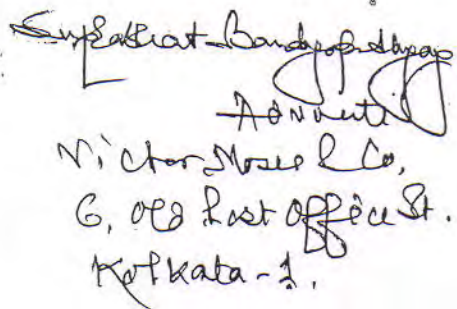 Bandyopadhyay
Advocate
Victor Moses & Co,
6, Old Post Office St.
Kolkata-1.